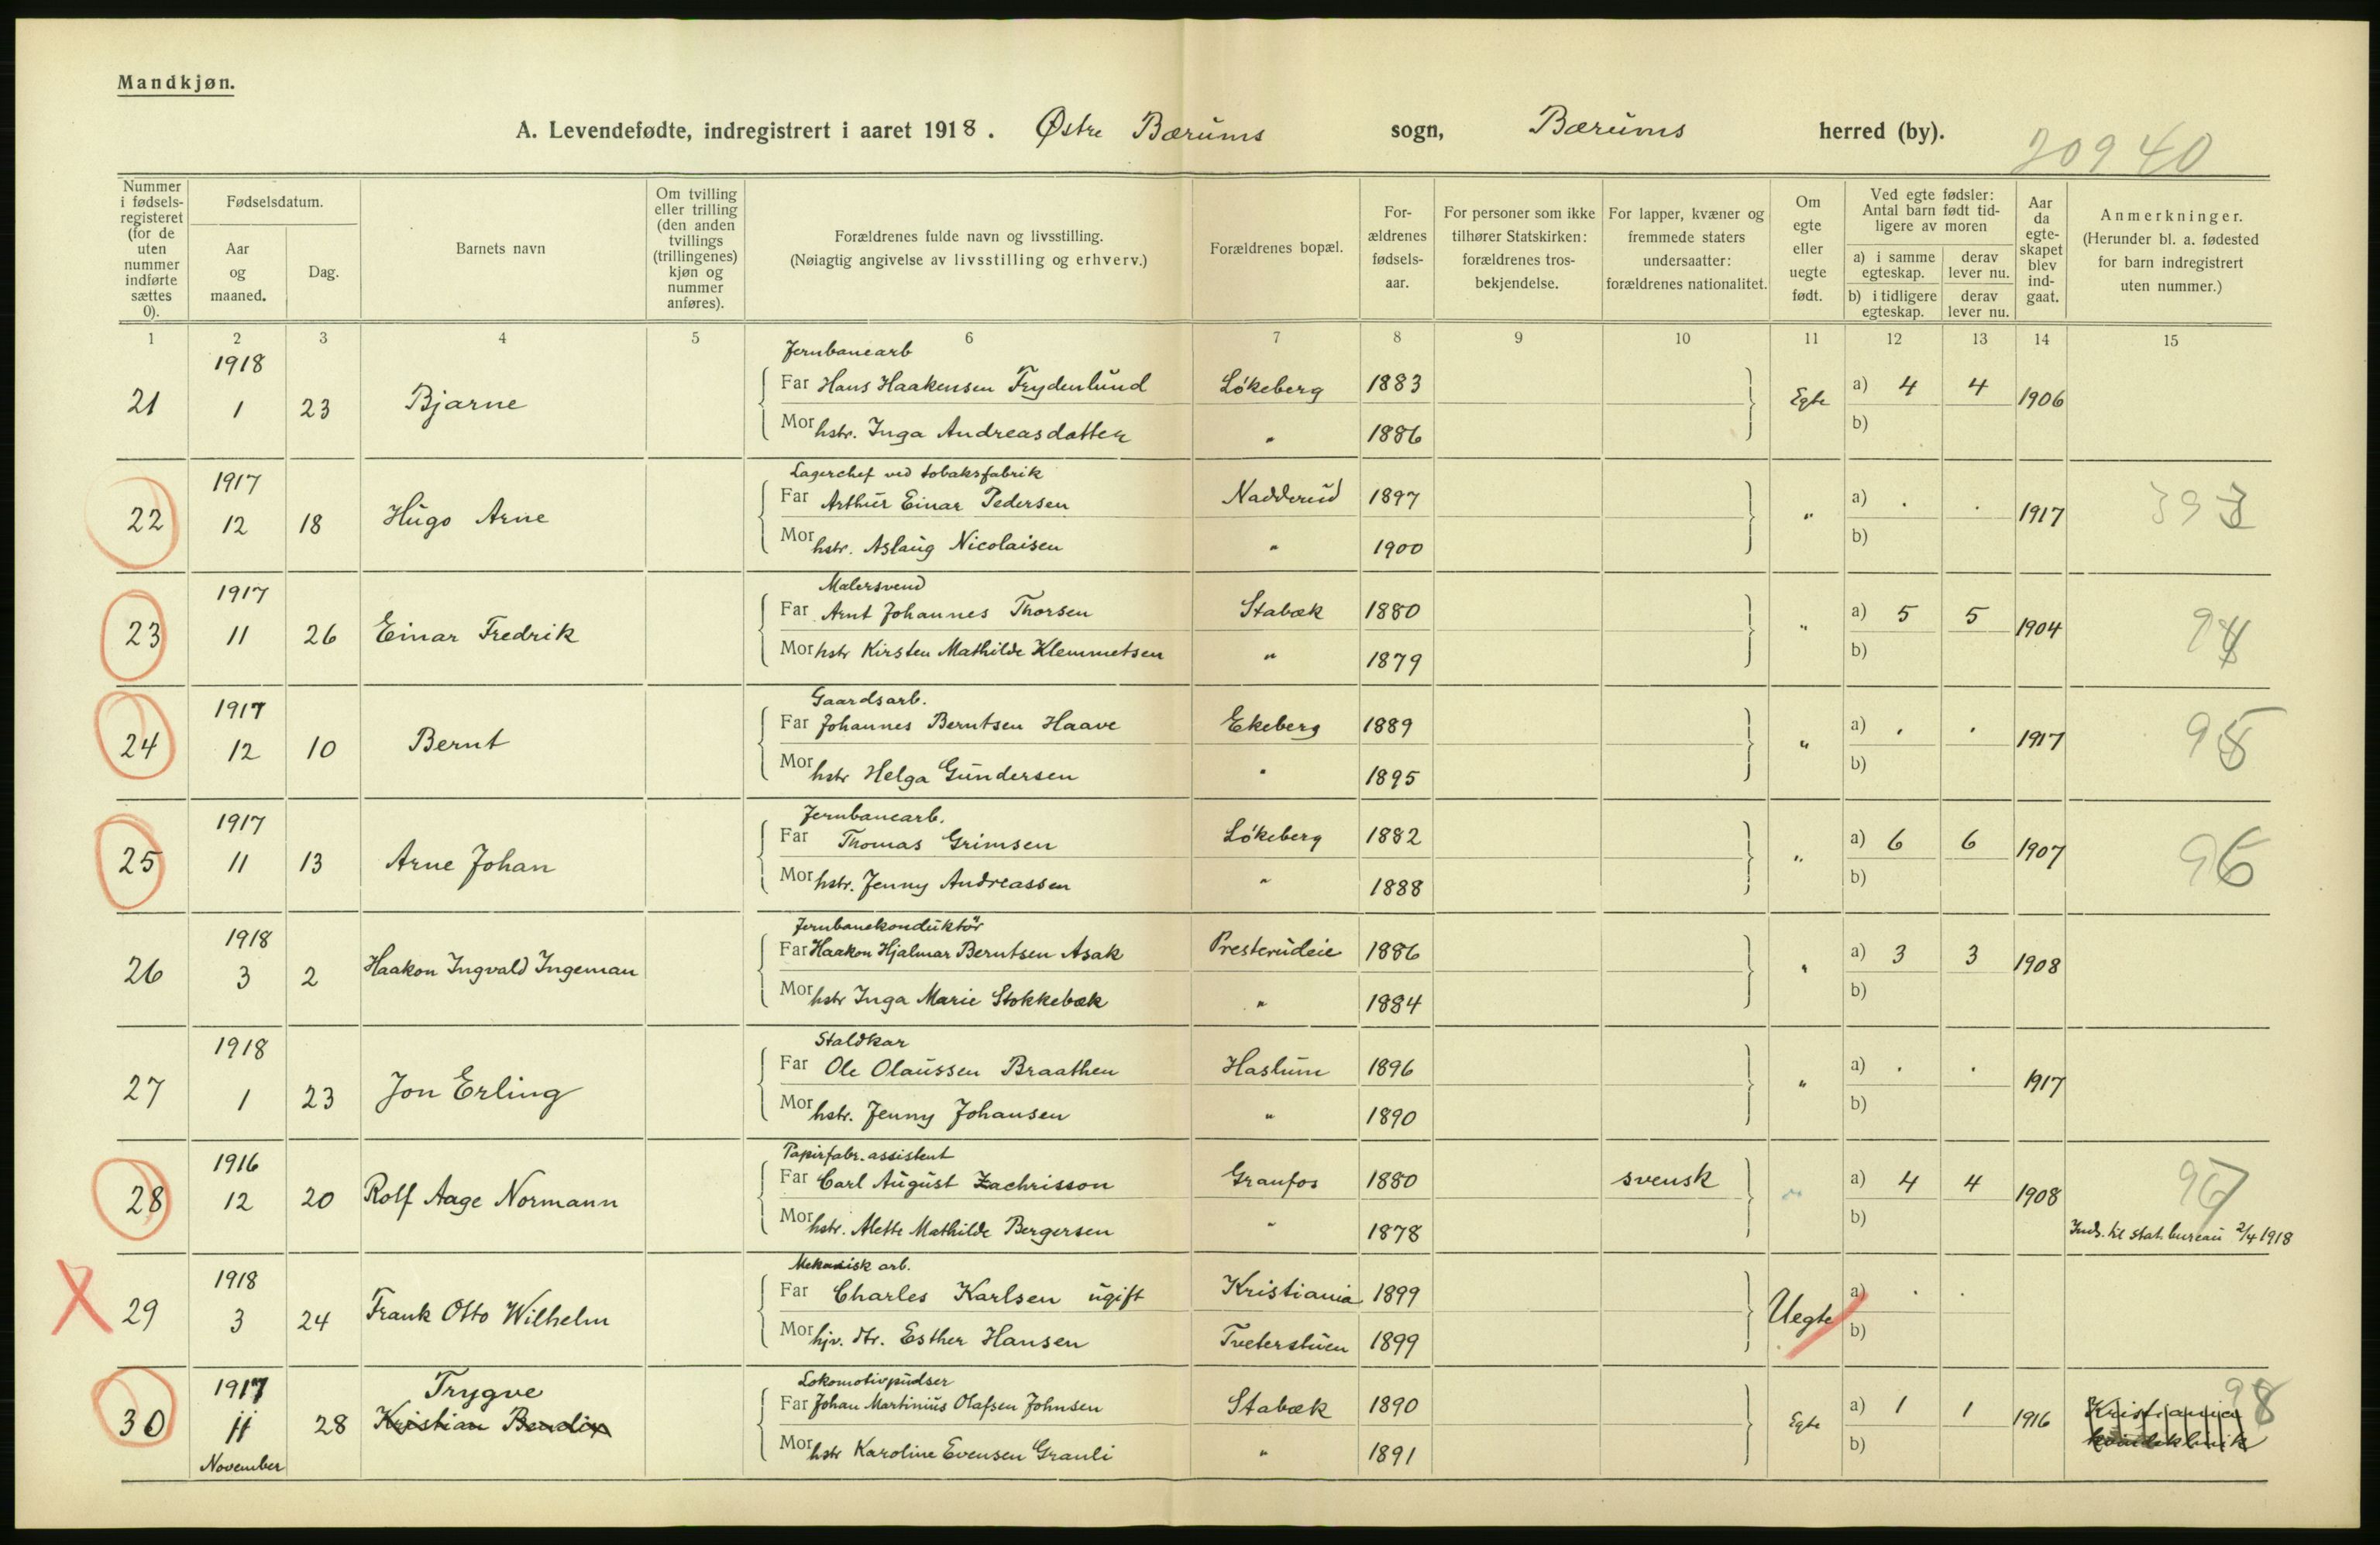 Mandkjøn.
A. Levendefødte, indregistrert i aaret 1918. Østre Bærums sogn, Bærums herred (by).
20940
Nummer i fødsels-registeret (for de uten nummer indførte sættes 0).
Fødselsdatum.
Aar og maaned.
Dag.
Barnets navn
Om tvilling eller trilling (den anden tvillings (trillingenes) kjøn og nummer anføres).
Forældrenes fulde navn og livsstilling.
(Nøiagtig angivelse av livsstilling og erhverv.)
Forældrenes bopæl.
For-ældrenes fødsels-aar.
For personer som ikke tilhører Statskirken: forældrenes tros-bekjendelse.
For lapper, kvæner og fremmede staters undersaatter: forældrenes nationalitet.
Om egte eller uegte født.
Ved egte fødsler: Antal barn født tid-ligere av moren
a) i samme egteskap.
derav lever nu.
b) i tidligere egteskap.
derav lever nu.
Aar da egte-skapet blev ind-gaat.
Anmerkninger.
(Herunder bl. a. fødested for barn indregistrert uten nummer.)
1 2 3 4 5 6 7 8 9 10 11 12 13 14 15
1918 Jernbanearb
21 1 23 Bjarne Far Hans Haakensen Frydenlund Løkeberg 1883 Egte a) 4 4 1906
Mor hstr. Inga Andreasdatter " 1886 b)
1917 Lagerchef ved tobaksfabrik
22 12 18 Hugo Arne Far Arthur Einar Pedersen Nadderud 1897 " a) . . 1917 393
Mor hstr. Aslaug Nicolaisen " 1900 b)
1917 Malersvend
23 11 26 Einar Fredrik Far Arnt Johannes Thorsen Stabæk 1880 " a) 5 5 1904 94
Mor hstr Kirsten Mathilde Klemmetsen " 1879 b)
1917 Gaardsarb.
24 12 10 Bernt Far Johannes Berntsen Haave Ekeberg 1889 " a) . . 1917 95
Mor hstr Helga Gundersen " 1895 b)
1917 Jernbanearb.
25 11 13 Arne Johan Far Thomas Grimsen Løkeberg 1882 " a) 6 6 1907 96
Mor hstr. Jenny Andreassen " 1888 b)
1918 Jernbanekonduktør
26 3 2 Haakon Ingvald Ingeman Far Haakon Hjalmar Berntsen Asak Presterudeie 1886 " a) 3 3 1908
Mor hstr Inga Marie Stokkebæk " 1884 b)
1918 Staldkar
27 1 23 Jon Erling Far Ole Olaussen Braathen Haslum 1896 " a) . . 1917
Mor hstr. Jenny Johansen " 1890 b)
1916 Papirfabr. assistent
28 12 20 Rolf Aage Normann Far Carl August Zachrisson Granfos 1880 svensk " a) 4 4 1908 97
Mor hstr. Alette Mathilde Bergersen " 1878 b) Inds. til stat. bureau 2/4 1918
1918 Mekanisk arb.
29 3 24 Frank Otto Wilhelm Far Charles Karlsen ugift Kristiania 1899 Uegte a) . .
Mor hjv. dtr. Esther Hansen Tveterstuen 1899 b)
1917 Trygve Lokomotivpudser
30 11 28 Kristian Bendix Far Johan Martinius Olafsen Johnsen Stabæk 1890 Egte a) 1 1 1916 Kristiania 98
November Mor hstr Karoline Evensen Granli " 1891 b) kvindeklinik